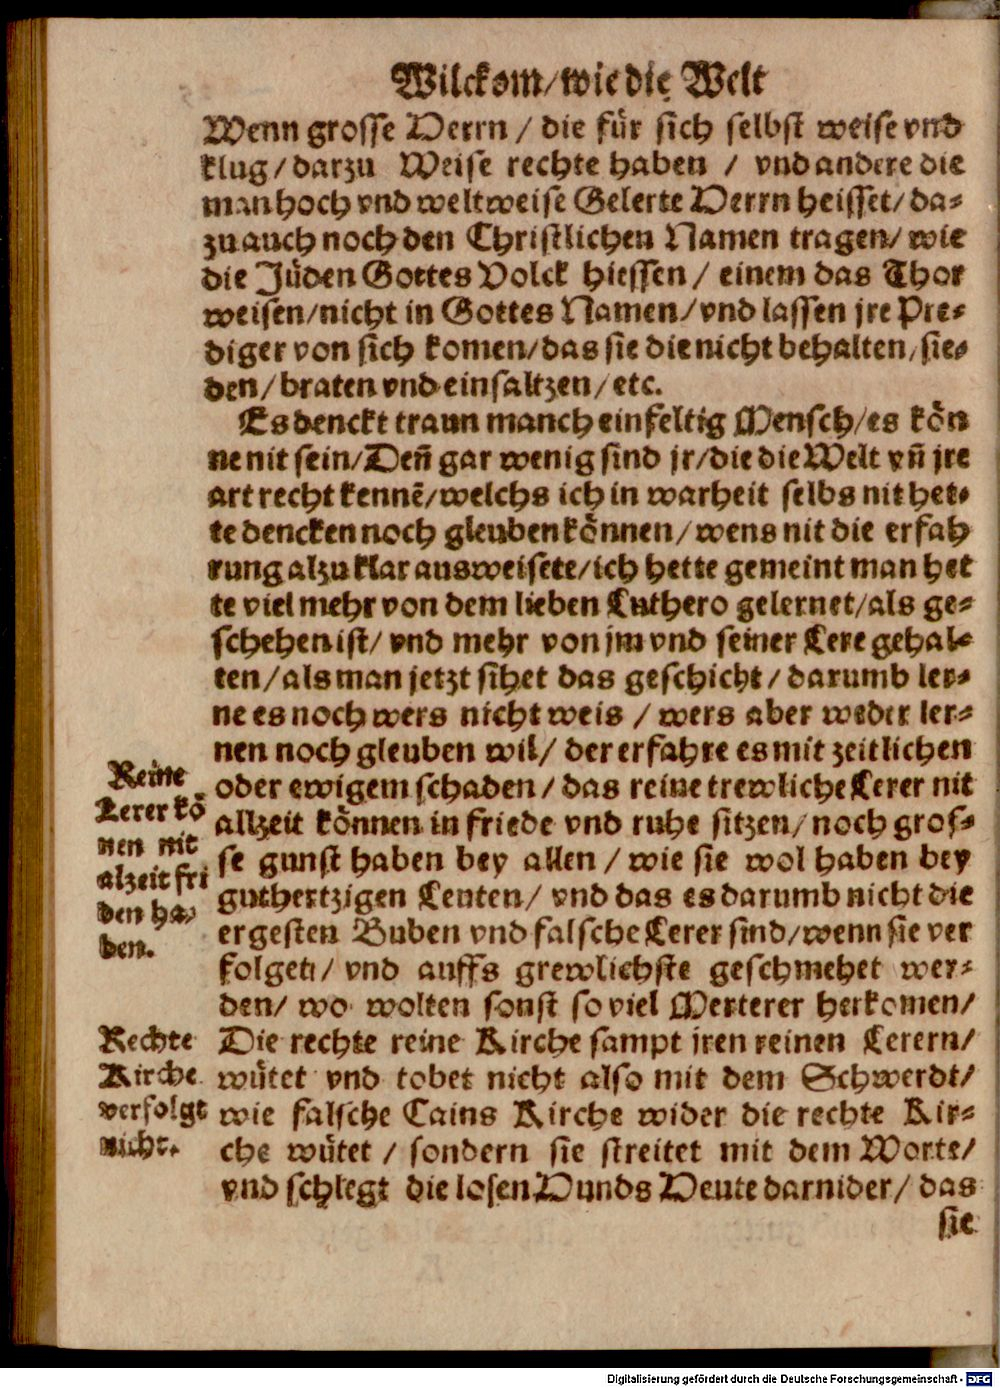 Wilckom/wie die Welt
Wenn grosse Herrn / die für sich selbst weise vnd
klug/darzu Weise rechte haben / vnd andere die
man hoch vnd weltweise Gelerte Herrn heisset/da-
zu auch noch den Christlichen Namen tragen/wie
die Jüden Gottes Volck hiessen / einem das Thor
weisen/nicht in Gottes Namen/vnd lassen jre Pre-
diger von sich komen/das sie die nicht behalten/sie-
den/braten vnd einsaltzen/etc.
Es denckt traun manch einfeltig Mensch/es kön
ne nit sein/Deñ gar wenig sind jr/die die Welt vñ jre
art recht kennẽ/welchs ich in warheit selbs nit het-
te dencken noch gleuben können/wens nit die erfah
rung alzu klar ausweisete/ich hette gemeint man het
te viel mehr von dem lieben Luthero gelernet/als ge-
schehen ist/ vnd mehr von jm vnd seiner Lere gehal-
ten/als man jetzt sihet das geschicht/darumb ler-
ne es noch wers nicht weis / wers aber weder ler-
nen noch gleuben wil/ der erfahre es mit zeitlichen
oder ewigem schaden/das reine trewliche Lerer nit
allzeit können in friede vnd ruhe sitzen/noch gros-
se gunst haben bey allen / wie sie wol haben bey
guthertzigen Leuten/ vnd das es darumb nicht die
ergesten Buben vnd falsche Lerer sind/wenn sie ver
folget/ vnd auffs grewlichste geschmehet wer-
den/ wo wolten sonst so viel Merterer herkomen/
Die rechte reine Kirche sampt jren reinen Lerern/
wütet vnd tobet nicht also mit dem Schwerdt/
wie falsche Cains Kirche wider die rechte Kir-
che wütet / sondern sie streitet mit dem Worte/
vnd schlegt die losen Hunds Heute darnider/ das
sie
Reine
Lerer kö
nen nit
alzeit fri
den ha-
ben.
Rechte
Kirche
verfolgt
nicht.
Digitalisierung gefördert durch die Deutsche Forschungsgemeinschaft - DFG